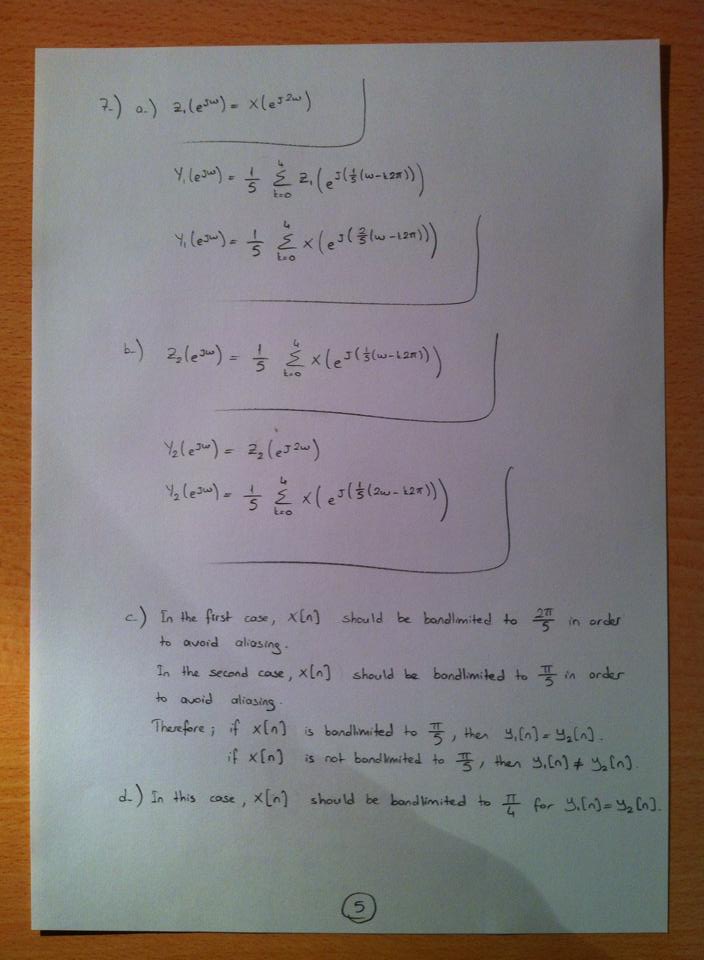 7-) a-) Z₁(e^jω) = X(e^j2ω)
Y₁(e^jω) = 1/5 Σ_{k=0}^{4} Z₁(e^j(1/5(ω-k2π)))
Y₁(e^jω) = 1/5 Σ_{k=0}^{4} X(e^j(2/5(ω-k2π)))
b-) Z₂(e^jω) = 1/5 Σ_{k=0}^{4} X(e^j(1/5(ω-k2π)))
Y₂(e^jω) = Z₂(e^j2ω)
Y₂(e^jω) = 1/5 Σ_{k=0}^{4} X(e^j(1/5(2ω-k2π)))
c-) In the first case, X[n] should be bandlimited to 2π/5 in order
to avoid aliasing.
In the second case, X[n] should be bandlimited to π/5 in order
to avoid aliasing.
Therefore; if X[n] is bandlimited to π/5, then y₁[n] = y₂[n].
if X[n] is not bandlimited to π/5, then y₁[n] ≠ y₂[n].
d-) In this case, X[n] should be bandlimited to π/4 for y₁[n] = y₂[n].
5